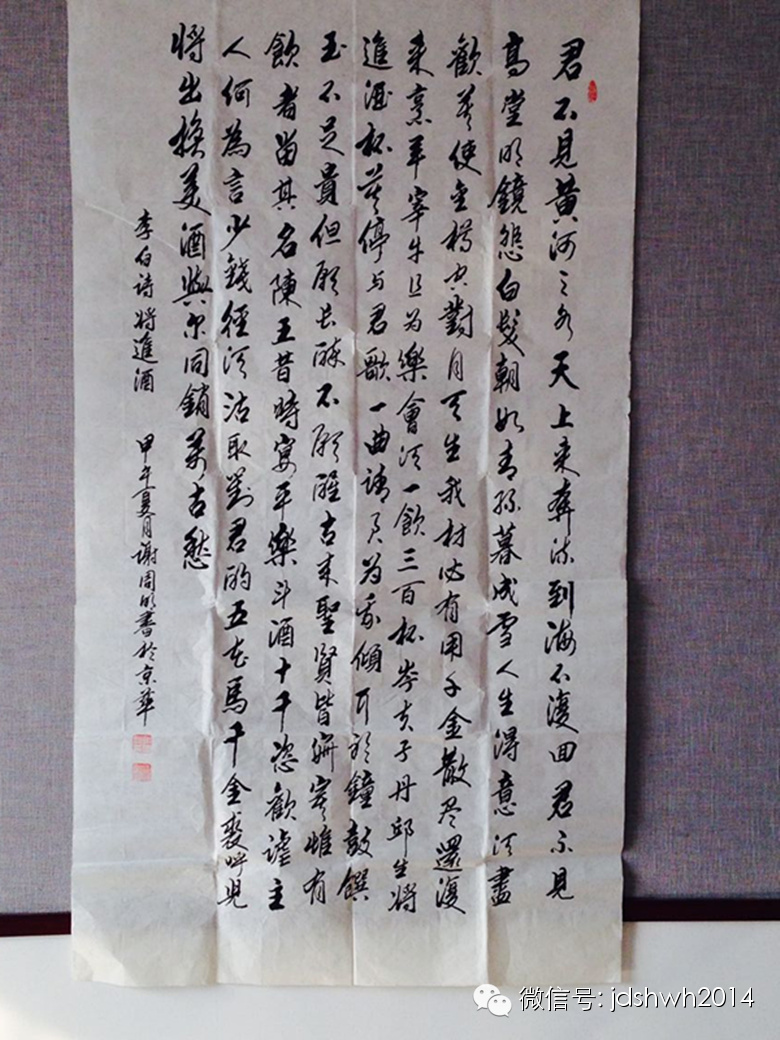 君不見黃河之水天上来奔流到海不復回君不見
高堂明鏡悲白髮朝如青絲暮成雪人生得意須盡
歡莫使金樽空對月天生我材必有用千金散尽還復
来烹羊宰牛且为樂會須一飲三百杯岑夫子丹邱生將
進酒杯莫停与君歌一曲請君为我傾耳聽鐘鼓饌
玉不足貴但願长醉不願醒古来聖賢皆寂寞惟有
飲者留其名陳王昔時宴平樂斗酒十千恣歡謔主
人何為言少錢徑須沽取對君酌五花馬千金裘呼児
將出換美酒與尔同銷萬古愁
李白诗 將進酒 甲午夏月谢周明書於京華
微信号: jdshwh2014